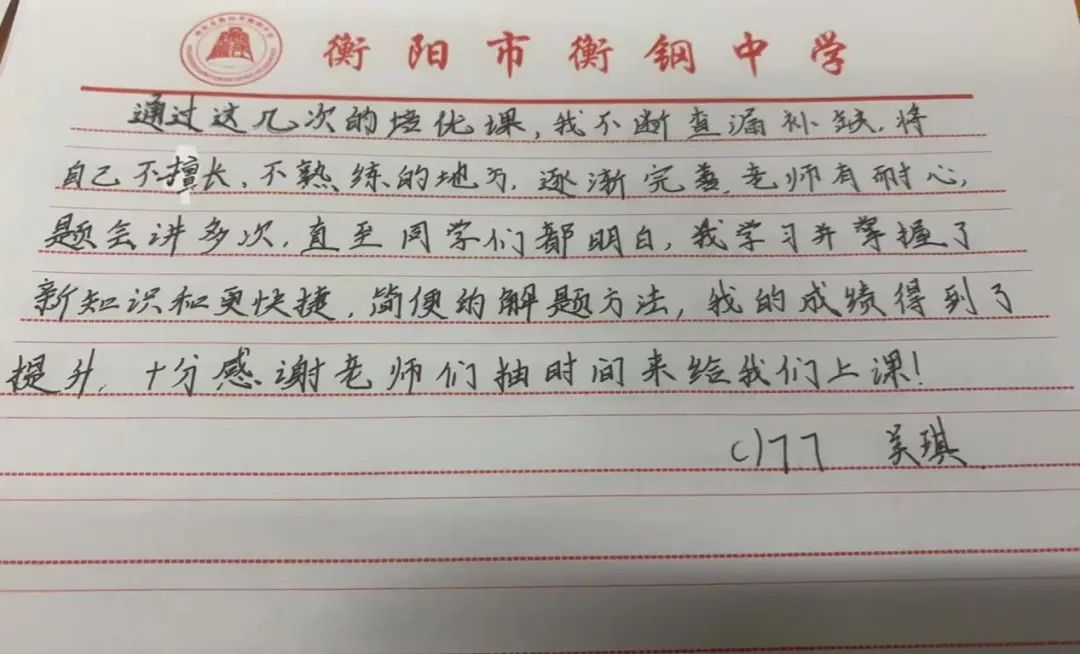 衡阳市衡钢中学
通过这几次的培优课，我不断查漏补缺，将
自己不擅长、不熟练的地方，逐渐完善，老师有耐心，
题会讲多次，直至同学们都明白，我学习并掌握了
新知识和更快捷，简便的解题方法，我的成绩得到了
提升，十分感谢老师们抽时间来给我们上课！
C177 吴琪